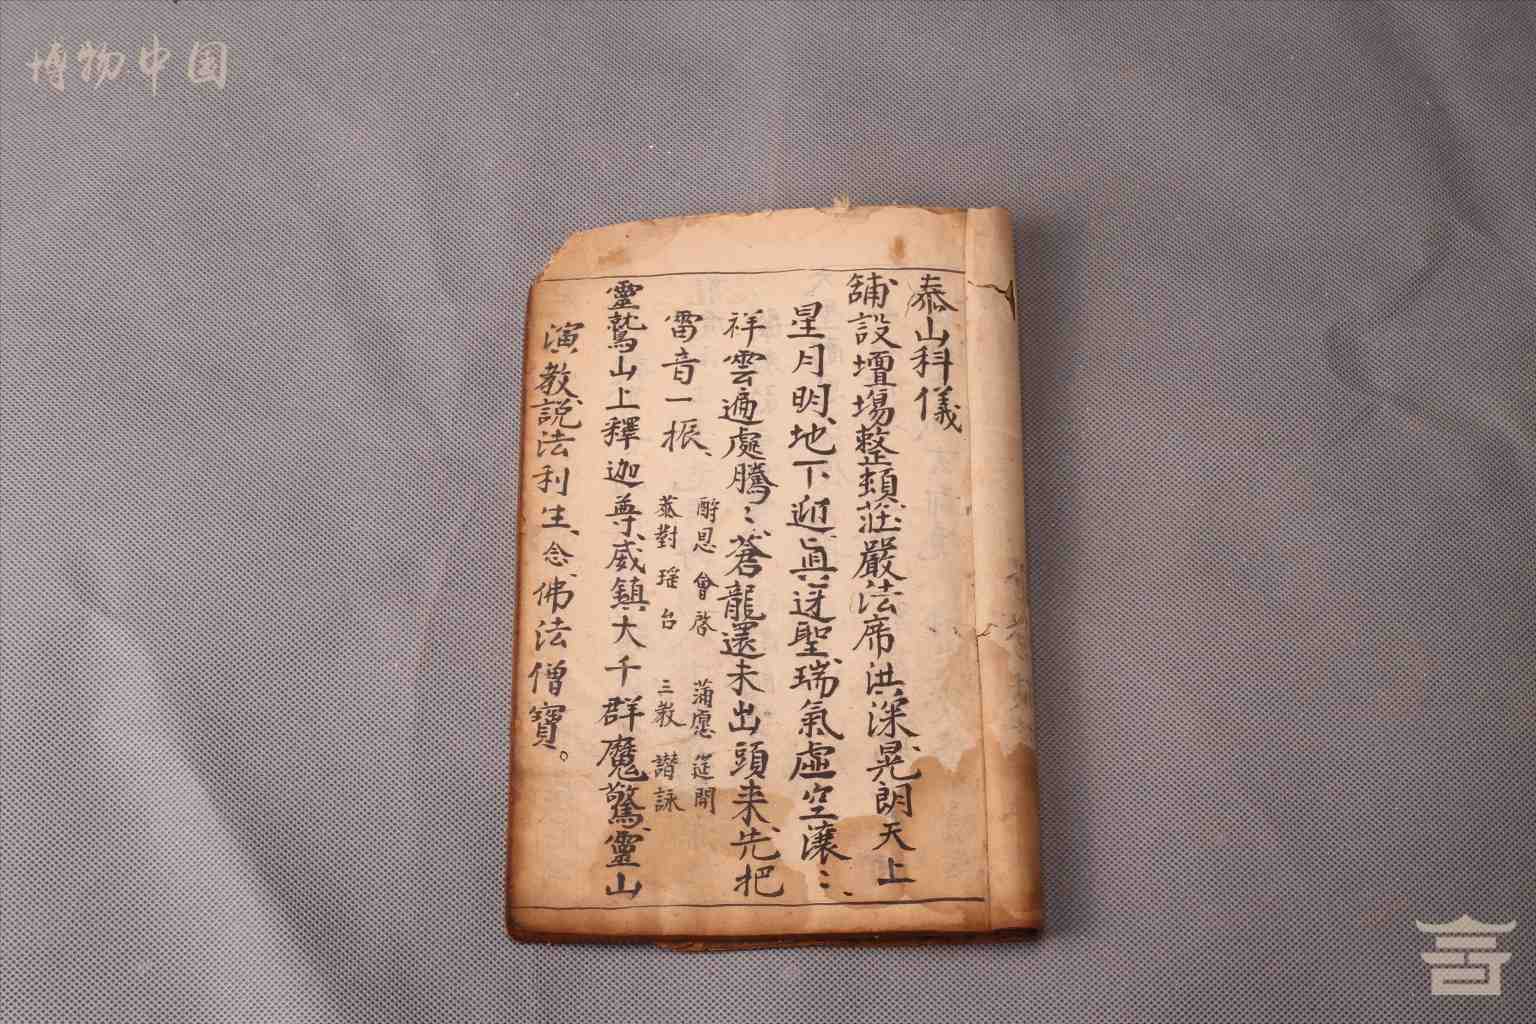 博物中国
泰山科儀
舖設壇塲整頓莊嚴法席洪深晃朗天上
星月明地下逈眞迓聖瑞氣虛空瀼〻
祥雲遍處騰〻蒼龍還未出頭来先把
雷音一振
酧恩會啓 蒲愿筵開
恭對瑶台 三教讃詠
靈鷲山上釋迦尊威鎮大千群魔驚靈山
演教説法利生念佛法僧寶。